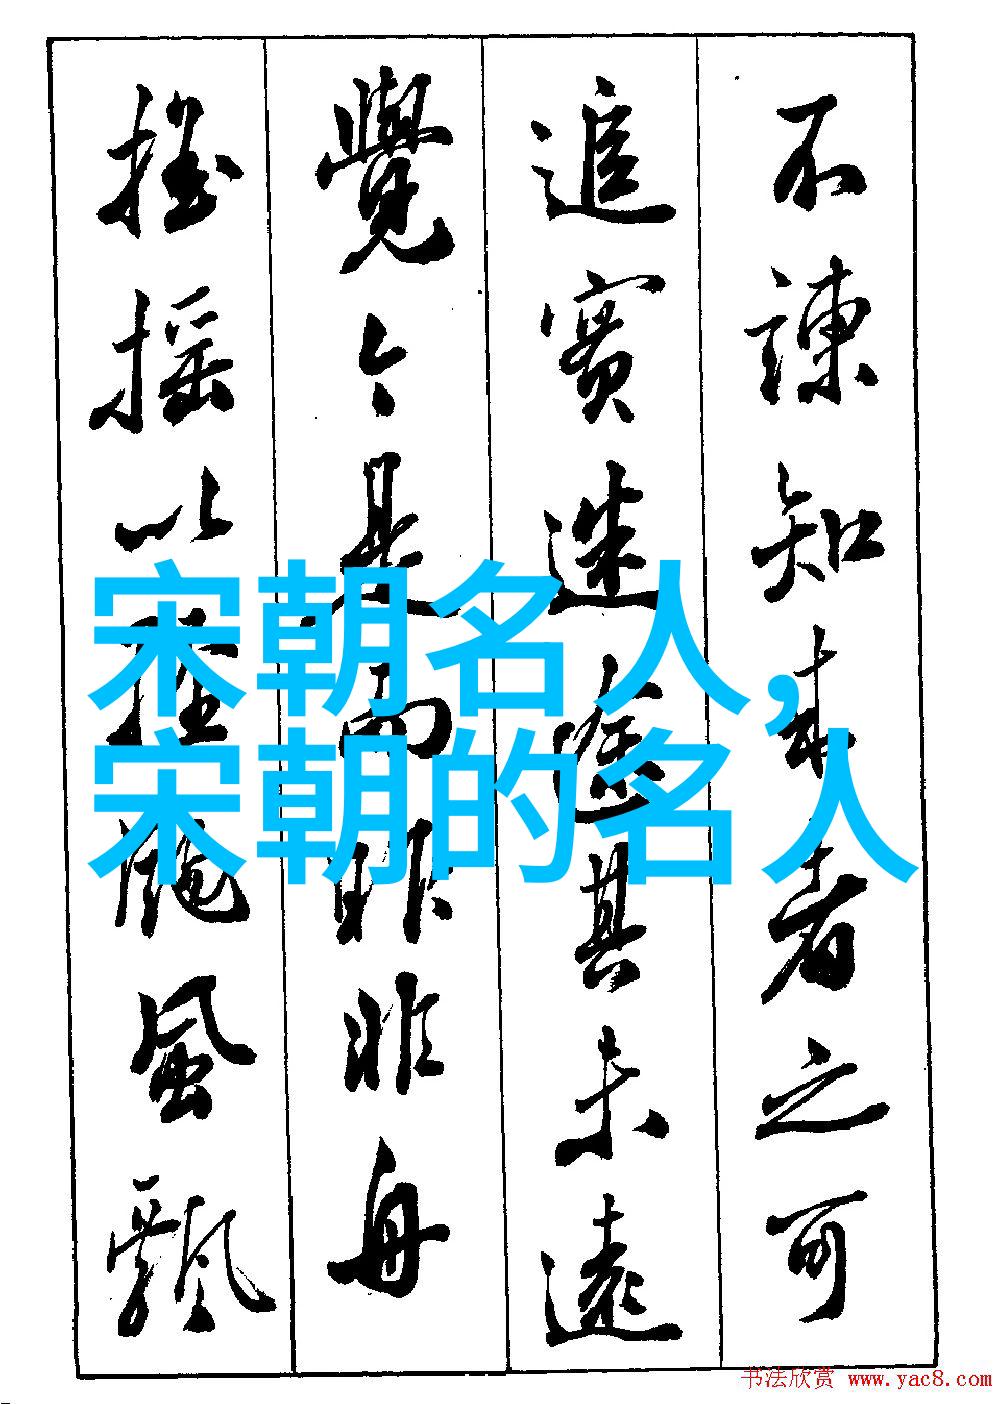 不諫知来者之可
追實迷途其未遠
覺今是而昨非舟
摇摇以軽颺風飄
宋朝名人，
宋朝的名人
书法欣赏 www.yac8.com